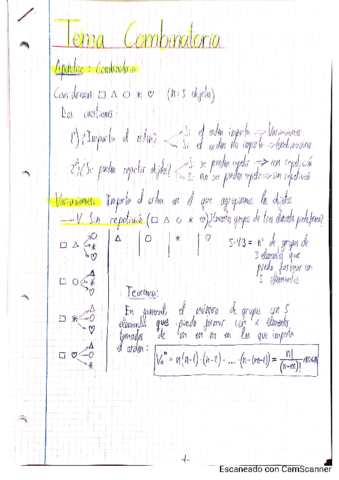 Tema Combinatoria
Apuntes: Combinatoria
Consideramos □ △ ○ * ♡ (n=5 objetos)
Dos cuestiones:
1ª) ¿Importa el orden? Si el orden importa => Variaciones
Si el orden no importa => Combinaciones
2ª) ¿Se pueden repetir objetos? Si se pueden repetir => con repetición
no se pueden repetir => sin repetición
Variaciones: Importa el orden en el que agrupamos los objetos
V. Sin repetición (□ △ ○ * ♡) ¿Cuántos grupos de tres elementos
□ △ ○ * ♡
△ | ○ | * | ♡
5·4·3 = nº de grupos de
3 elementos que
puedo formar con
5 elementos
□ ○ △ * ♡
□ * △ ○ ♡
□ ♡ △ ○ *
Teorema:
En general el número de grupos con
elementos que puedo formar con elementos
tomados de m en m en los que importa
el orden: Vₙᵐ = n(n-1)·(n-2)·...·(n-(m-1)) = n!/(n-m)!
-1-
Escaneado con CamScanner